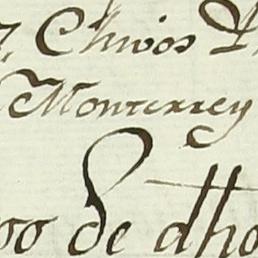 Chivos
Monterrey
de dho